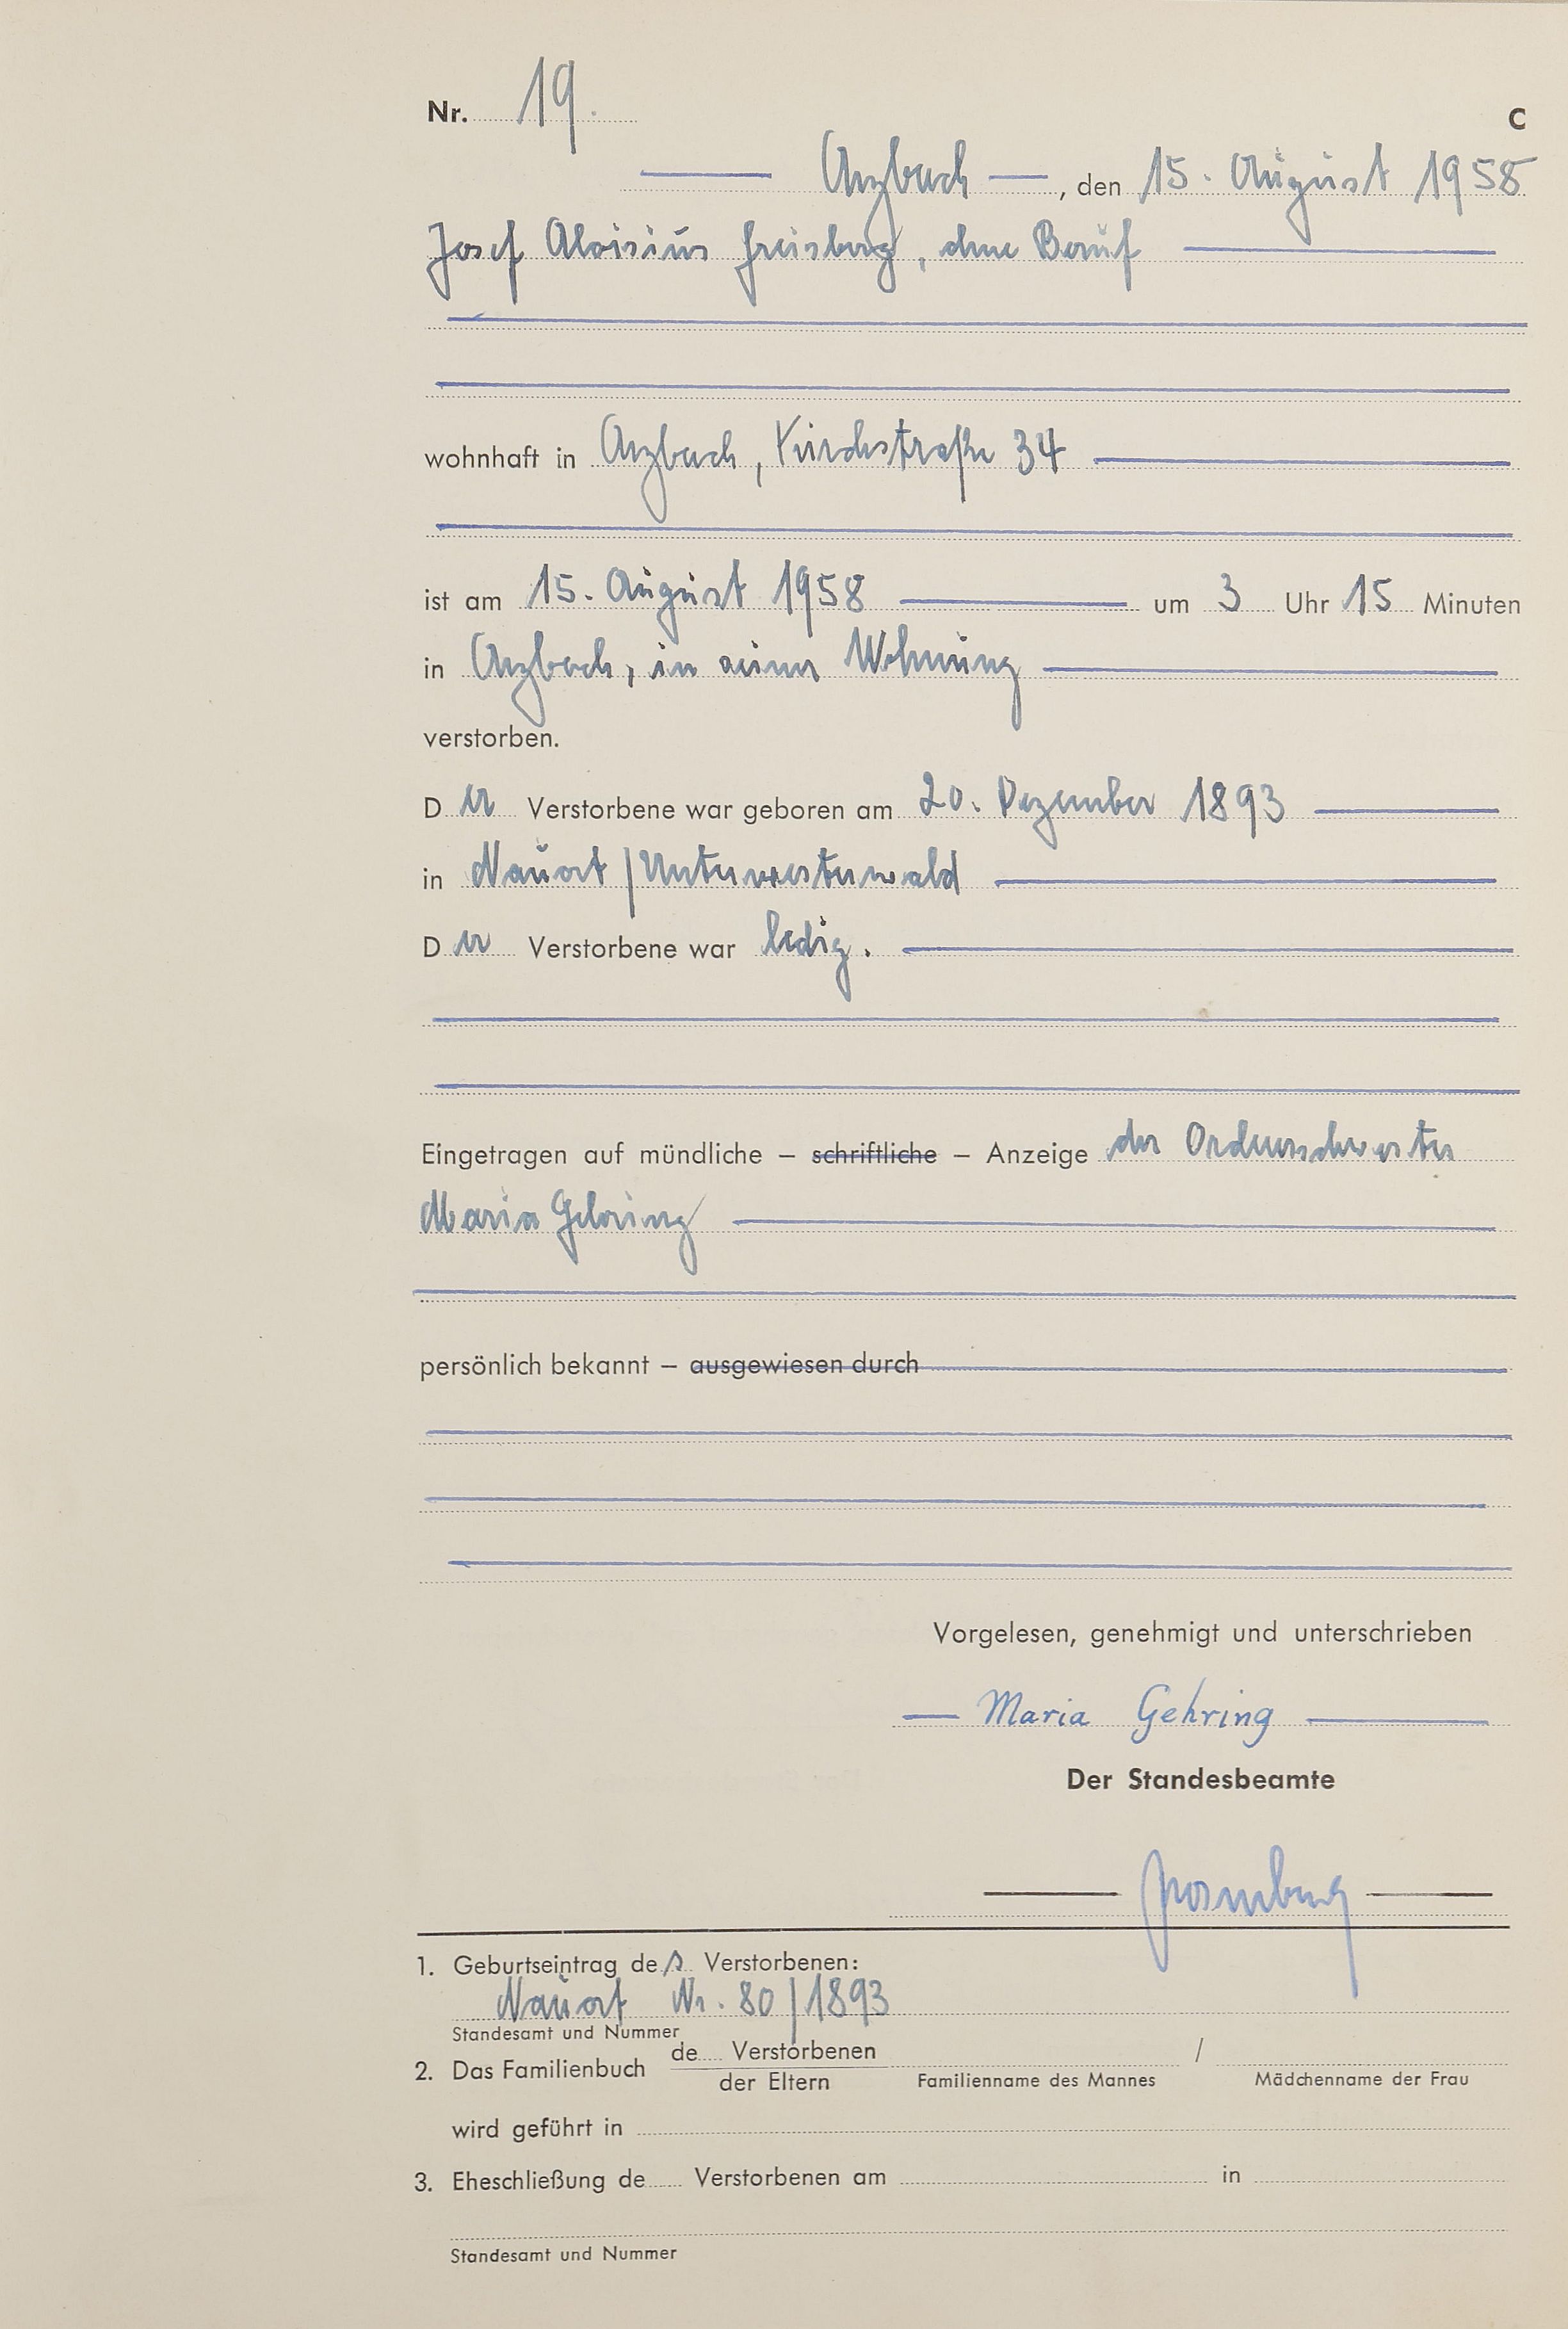 Nr. 19. C
Arzbach, den 15. August 1958
Josef Aloisius Freisberg, ohne Beruf
wohnhaft in Arzbach, Kirchstraße 34
ist am 15. August 1958 um 3 Uhr 15 Minuten
in Arzbach, in seiner Wohnung
verstorben.
Der Verstorbene war geboren am 20. Dezember 1893
in Nauort / Unterwesterwald
Der Verstorbene war ledig.
Eingetragen auf mündliche – schriftliche – Anzeige der Ordensschwester
Maria Gehring
persönlich bekannt – ausgewiesen durch
Vorgelesen, genehmigt und unterschrieben
Maria Gehring
Der Standesbeamte
1. Geburtseintrag des Verstorbenen:
Nauort Nr. 80/1893
Standesamt und Nummer
2. Das Familienbuch de Verstorbenen /
der Eltern Familienname des Mannes Mädchenname der Frau
wird geführt in
3. Eheschließung de Verstorbenen am in
Standesamt und Nummer